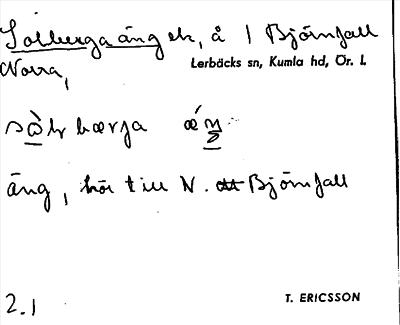 Solbergaäng ek, å 1 Björnfall
Norra,
Lerbäcks sn, Kumla hd, Ör. l.
bærja
äng, hör till N. Björnfall
2.1
T. ERICSSON